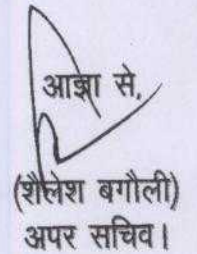 आज्ञा से,
(शैलेश बगौली)
अपर सचिव।